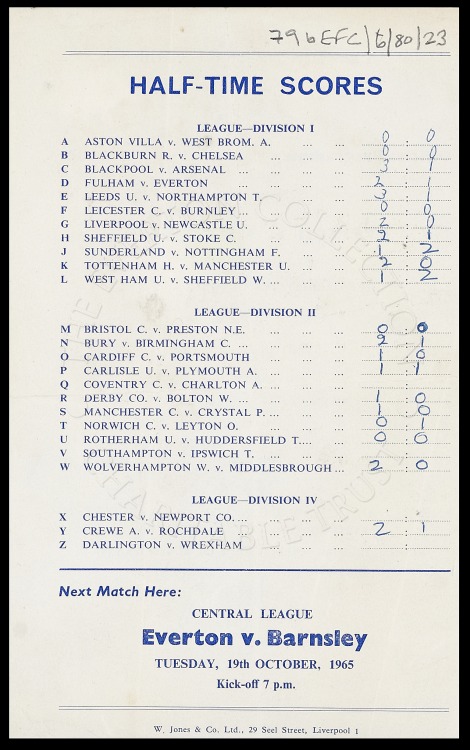 796 EFC/6/80/23
HALF-TIME SCORES
LEAGUE—DIVISION I
A ASTON VILLA v. WEST BROM. A. ... ... 0 : 0
B BLACKBURN R. v. CHELSEA ... ... 0 : 0
C BLACKPOOL v. ARSENAL ... ... ... 3 : 1
D FULHAM v. EVERTON ... ... ... 2 : 1
E LEEDS U. v. NORTHAMPTON T. ... ... 3 : 1
F LEICESTER C. v. BURNLEY ... ... ... 0 : 0
G LIVERPOOL v. NEWCASTLE U. ... ... 2 : 0
H SHEFFIELD U. v. STOKE C. ... ... 2 : 1
J SUNDERLAND v. NOTTINGHAM F. ... ... 1 : 2
K TOTTENHAM H. v. MANCHESTER U. ... ... 2 : 0
L WEST HAM U. v. SHEFFIELD W. ... ... ... 1 : 2
LEAGUE—DIVISION II
M BRISTOL C. v. PRESTON N.E. ... ... 0 : 0
N BURY v. BIRMINGHAM C. ... ... ... 2 : 1
O CARDIFF C. v. PORTSMOUTH ... ... 1 : 0
P CARLISLE U. v. PLYMOUTH A. ... ... 1 : 1
Q COVENTRY C. v. CHARLTON A. ... ... ... :
R DERBY CO. v. BOLTON W. ... ... ... 1 : 0
S MANCHESTER C. v. CRYSTAL P. ... ... ... 1 : 0
T NORWICH C. v. LEYTON O. ... ... 0 : 1
U ROTHERHAM U. v. HUDDERSFIELD T. ... ... 0 : 0
V SOUTHAMPTON v. IPSWICH T. ... ... :
W WOLVERHAMPTON W. v. MIDDLESBROUGH ... 2 : 0
LEAGUE—DIVISION IV
X CHESTER v. NEWPORT CO. ... ... ... :
Y CREWE A. v. ROCHDALE ... ... ... 2 : 1
Z DARLINGTON v. WREXHAM ... ... ... :
Next Match Here:
CENTRAL LEAGUE
Everton v. Barnsley
TUESDAY, 19th OCTOBER, 1965
Kick-off 7 p.m.
W. Jones & Co. Ltd., 29 Seel Street, Liverpool 1